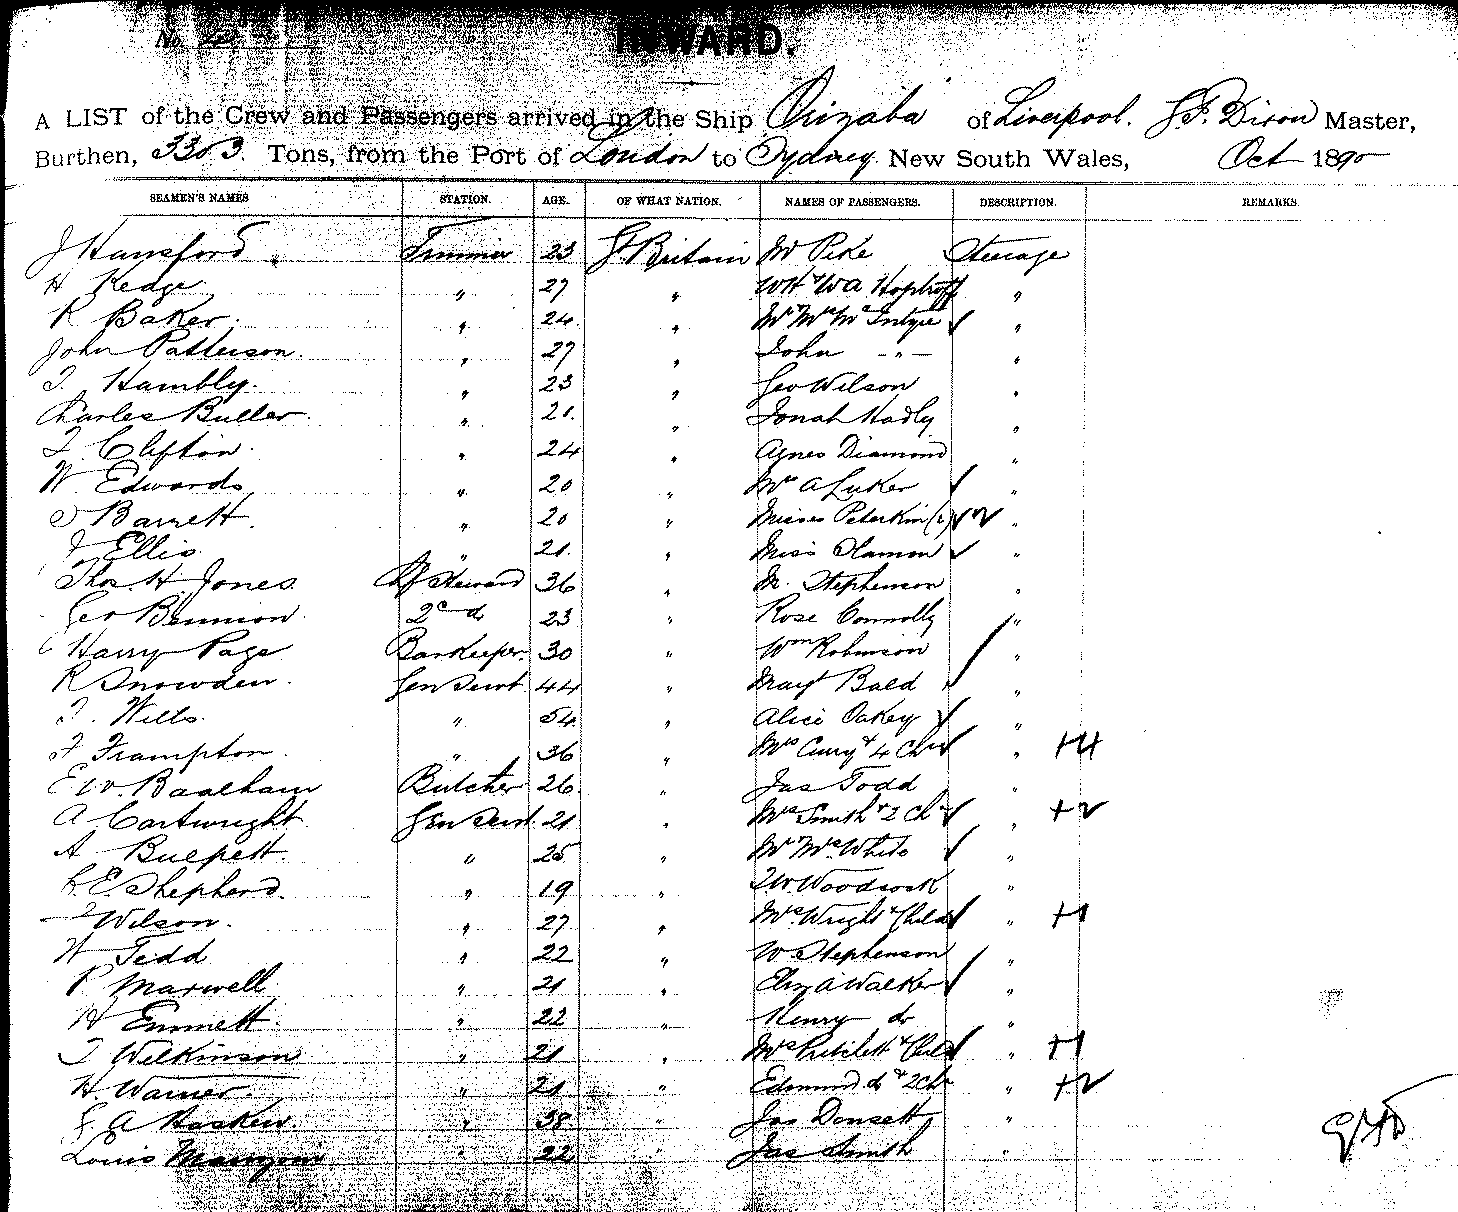 No.
INWARD.
A LIST of the Crew and Passengers arrived in the Ship Orizaba of Liverpool. Dixon Master,
Burthen, 3303. Tons, from the Port of London to Sydney New South Wales, Oct 1890
SEAMEN'S NAMES STATION. AGE. OF WHAT NATION. NAMES OF PASSENGERS. DESCRIPTION. REMARKS.
J Hansford Trimmer 23 Gt Britain Mr Pike Steerage
H Kedge " 27 " WH & WA "
R Baker " 24 " Mr & Mrs McIntyre "
John Patterson " 27 " John - " - "
T. Hambly " 23 " Geo Wilson "
Charles Buller " 21 " Jonah Hadly "
T Clifton " 24 " Agnes Diamond "
W Edwards " 20 " Mrs A Luker "
J Barrett " 20 " Misses Peterkin (2) 2 "
J Ellis " 21 " Miss "
Thos H Jones Ch Steward 36 " M. Stephenson "
Geo 2nd 23 " Rose Connolly "
Harry Page Barkeeper 30 " Wm Robinson "
R Snowden Gen Servt 44 " Mary Bald "
T. Wills " 54 " Alice Oakey "
F Frampton " 36 " Mrs Curry & 4 Chn " +4
E W. Baalham Butcher 26 " Jas Todd "
A Cartwright Gen Servt 21 " Mrs Smith & 2 Ch " +2
A Bulpett " 25 " Mr & Mrs White "
E Shepherd " 19 " "
Wilson " 27 " Mrs Wright & Child " +1
W Tedd " 22 " W Stephenson "
P. Maxwell " 21 " Eliz A Walker "
H Emmett " 22 " Henry do "
T Wilkinson " 21 " Mrs & Child " +1
H. Warner " 21 " Edmund do & 2 Chn " +2
A Haskew " 38 " Jas "
Louis " 22 " Jas Smith "